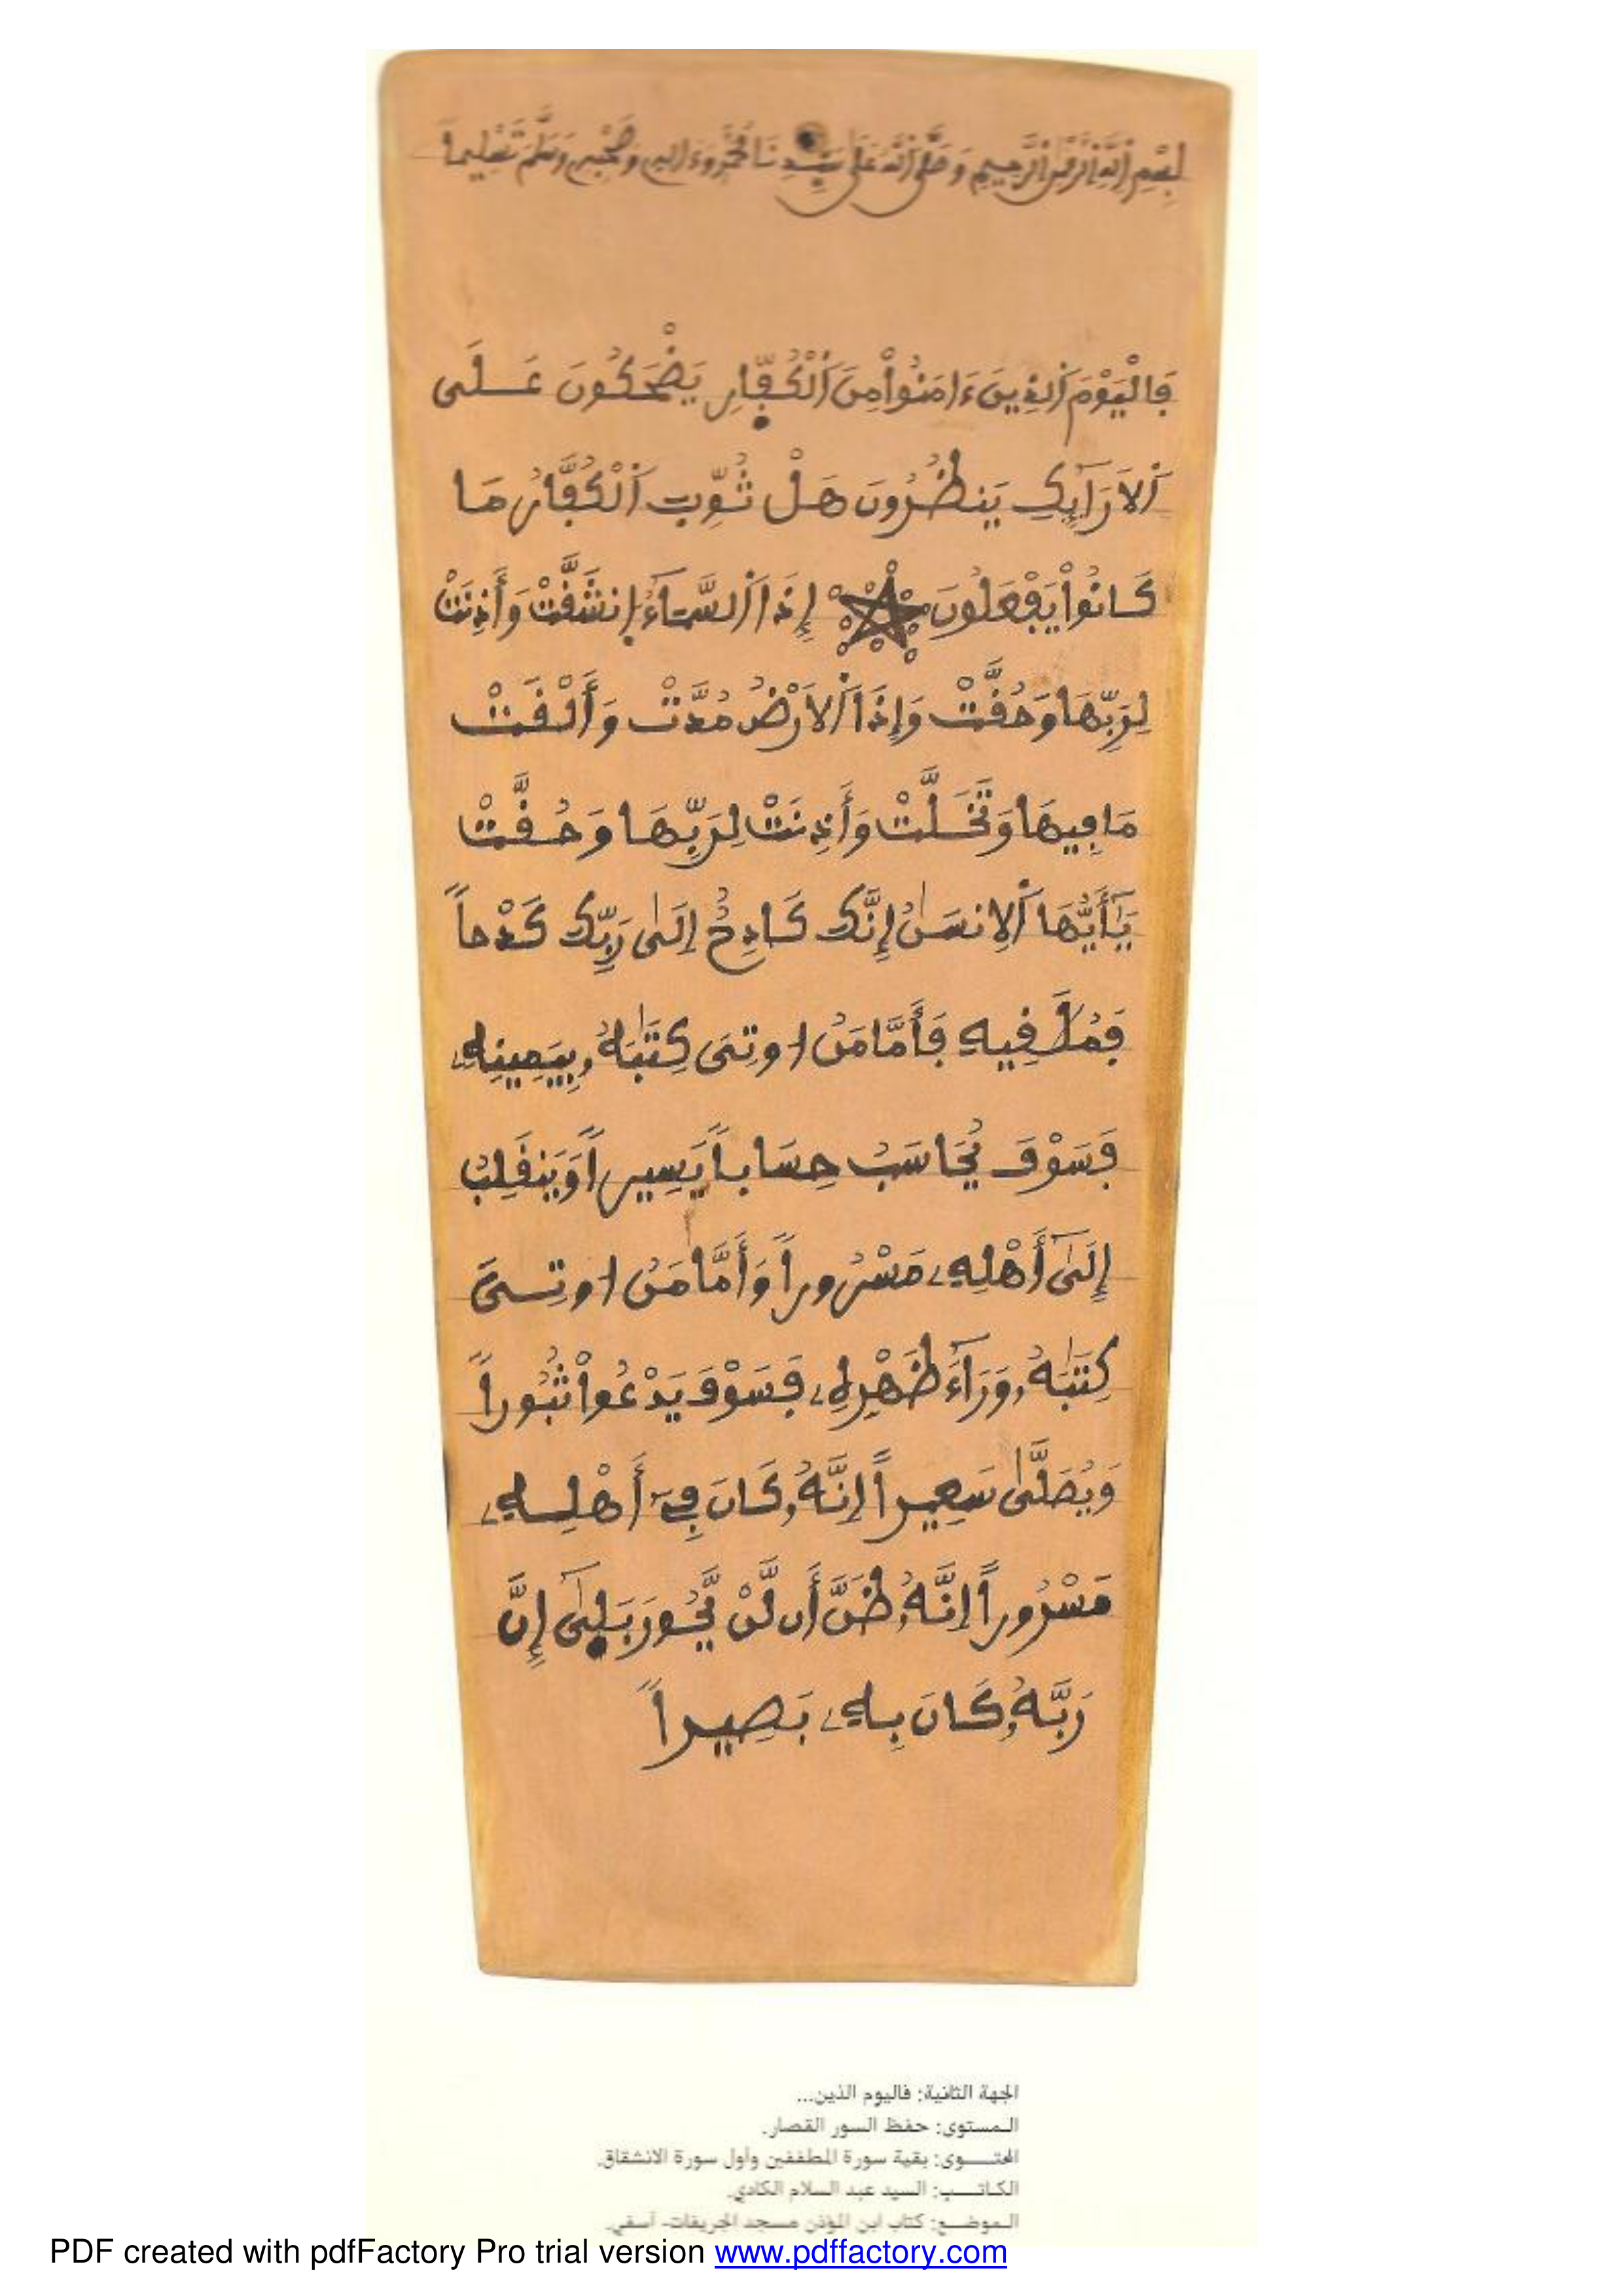 بِسْمِ اللَّهِ الرَّحْمٰنِ الرَّحِيمِ وَصَلَّى اللَّهُ عَلَى سَيِّدِنَا مُحَمَّدٍ وَءَالِهِ وَصَحْبِهِ وَسَلَّمَ تَسْلِيماً
فَالْيَوْمَ اَ۬لذِينَ ءَامَنُواْ مِنَ اَ۬لْكُفّ۪ارِ يَضْحَكُونَ عَلَى
اَ۬لَارَآئِكِ يَنظُرُونَ هَلْ ثُوِّبَ اَ۬لْكُفَّارُ مَا
كَانُواْ يَفْعَلُونَ إِذَا اَ۬لسَّمَآءُ اُ۪نشَقَّتْ وَأَذِنَتْ
لِرَبِّهَا وَحُقَّتْ وَإِذَا اَ۬لَارْضُ مُدَّتْ وَأَلْقَتْ
مَا فِيهَا وَتَخَلَّتْ وَأَذِنَتْ لِرَبِّهَا وَحُقَّتْ
يَٰٓأَيُّهَا اَ۬لِانسَٰنُ إِنَّكَ كَادِحٌ إِلَىٰ رَبِّكَ كَدْحاً
فَمُلَٰقِيهِ فَأَمَّا مَنُ اوتِيَ كِتَٰبَهُۥ بِيَمِينِهِۦ
فَسَوْفَ يُحَاسَبُ حِسَاباً يَسِيراً وَيَنقَلِبُ
إِلَىٰٓ أَهْلِهِۦ مَسْرُوراً وَأَمَّا مَنُ اوتِيَ
كِتَٰبَهُۥ وَرَآءَ ظَهْرِهِۦ فَسَوْفَ يَدْعُواْ ثُبُوراً
وَيُصَلَّىٰ سَعِيراً اِنَّهُۥ كَانَ فِےٓ أَهْلِهِۦ
مَسْرُوراً اِنَّهُۥ ظَنَّ أَن لَّنْ يَّحُورَ بَل۪ىٰٓ إِنَّ
رَبَّهُۥ كَانَ بِهِۦ بَصِيراً
الجهة الثانية: فاليوم الذين...
الـمستوى: حفظ السور القصار.
المحتـــوى: بقية سورة المطففين وأول سورة الانشقاق.
الكاتـــب: السيد عبد السلام الكادي.
الـموضــع: كتاب ابن المؤذن مسجد الجريفات- آسفي.
PDF created with pdfFactory Pro trial version www.pdffactory.com